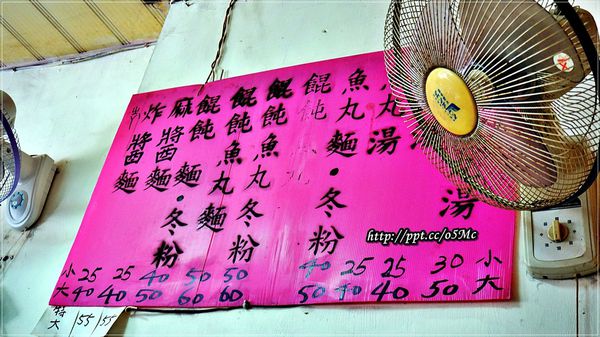 炸醬麵
麻醬麵
餛飩麵·冬粉
餛飩魚丸麵
餛飩魚丸冬粉
餛飩
魚丸麵·冬粉
魚丸湯
湯
小 25 25 40 50 50 40 25 25 30 小
大 40 40 50 60 60 50 40 40 50 大
特大 55 55
http://ppt.cc/o5Mc